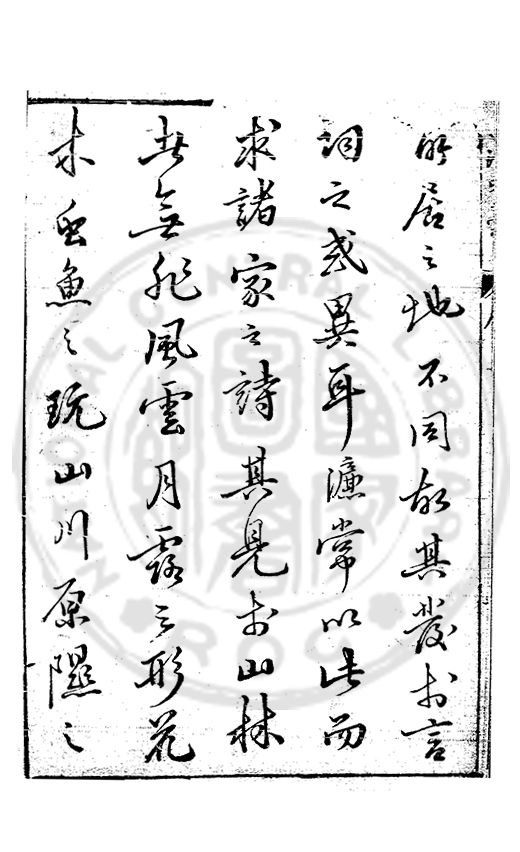 所居之地不同故其發於言
詞之或異耳濂常以此而
求諸家之詩其見於山林
者無非風雲月露之形花
木虫魚之玩山川原隰之
NATIONAL CENTRAL LIBRARY
ROC